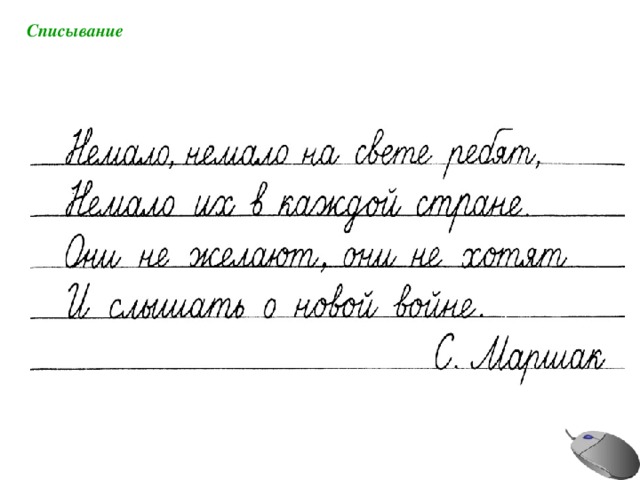 Списывание
Немало, немало на свете ребят,
Немало их в каждой стране.
Они не желают, они не хотят
И слышать о новой войне.
С. Маршак